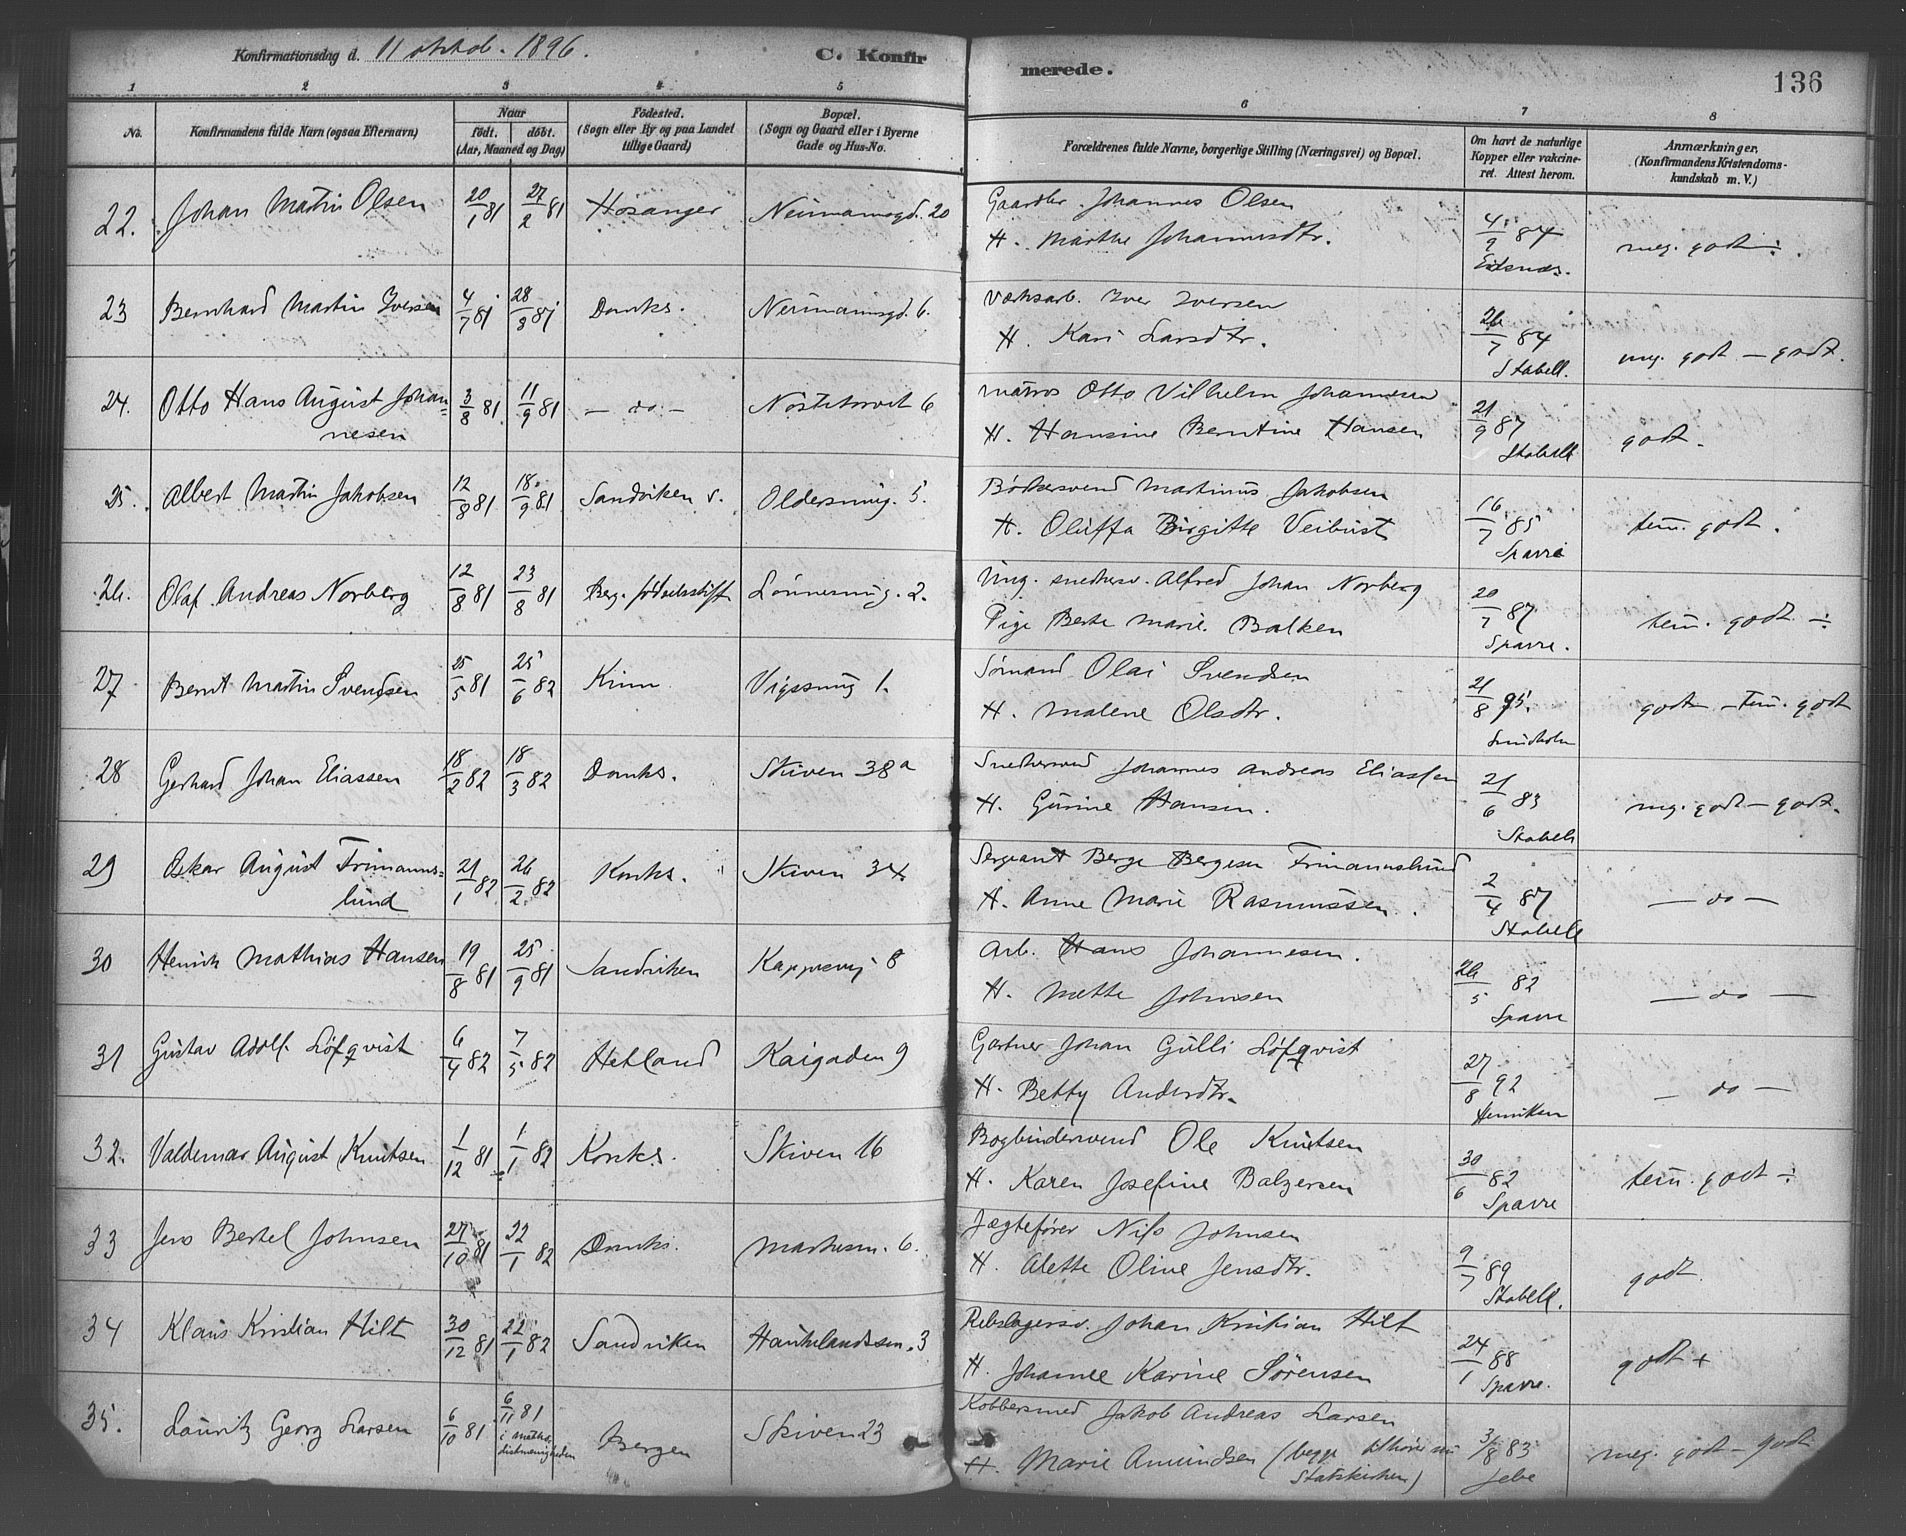 Konfirmationsdag d. 11 oktob. 1896.
C. Konfirmerede.
136
1 2 3 4 5 6 7 8
No.
Konfirmandens fulde Navn (ogsaa Efternavn)
Naar
født. døbt.
(Aar, Maaned og Dag)
Fødested.
(Sogn eller By og paa Landet
tillige Gaard)
Bopæl.
(Sogn og Gaard eller i Byerne
Gade og Hus-No.
Forældrenes fulde Navne, borgerlige Stilling (Næringsvei) og Bopæl.
Om havt de naturlige
Kopper eller vakcine-
ret. Attest herom.
Anmærkninger.
(Konfirmandens Kristendoms-
kundskab m. V.)
22. Johan Martin Olsen 20/1 81 27/2 81 Hosanger Neumannsgd. 20
Gaardbr. Johannes Olsen
H. Marthe Johannesdtr.
4/9 84
meg. godt ÷.
23 Bernhard Martin Iversen 4/7 81 28/8 81 Domks. Neumannsgd. 6.
Værksarb. Iver Iversen
H. Kari Larsdtr.
26/7 84
Stabell.
mg. godt – godt.
24. Otto Hans August Johan=
nesen
3/8 81 11/9 81 – do – Nøstetorvet 6
Matros Otto Vilhelm Johannesen
H. Hansine Berntine Hansen
21/9 87
Stabell
godt.
25. Albert Martin Jakobsen 12/8 81 18/9 81 Sandviken s. Oldersmug. 5.
Bødkersvend Martinus Jakobsen
H. Oluffa Birgitte Veibust
16/7 85
Sparre
tem. godt.
26. Olaf Andreas Norberg 12/8 81 23/8 81 Berg. fødselsstift Lønnesmug. 2.
Ung. snedkersv. Alfred Johan Norberg
Pige Berte Marie Balken
20/7 87
Sparre.
tem. godt ÷
27 Bernt Martin Svendsen 25/5 81 25/6 82 Kinn Vigssmug 1.
Sømand Olai Svendsen
H. Malene Olsdtr.
21/8 95.
godt – tem. godt
28 Gerhard Johan Eliassen 18/2 82 18/3 82 Domks. Skiven 38a
Snedkersvend Johannes Andreas Eliassen
H. Gurine Hansen.
21/6 83
Stabell
mg. godt – godt.
29 Oskar August Frimanns=
lund
21/1 82 26/2 82 Korsks. Skiven 34.
Sergeant Berge Bergesen Frimannslund
H. Anne Marie Rasmussen.
2/4 87
Stabell
– do –
30 Henrik Mathias Hansen 19/8 81 25/9 81 Sandviken Kappevej 8
Arb. Hans Johannesen.
H. Mette Johnsen
26/5 82
Sparre
– do –
31 Gustav Adolf Löfqvist 6/4 82 7/5 82 Hetland Kaigaden 9
Gartner Johan Gulli Löfqvist
H. Betty Andersdtr.
27/8 92
Henriksen
– do –
32. Valdemar August Knutsen 1/12 81 1/1 82 Korsks. Skiven 16
Bogbindersvend Ole Knutsen
H. Karen Josefine Balzersen
30/6 82
Sparre
tem. godt ÷
33 Jens Bertel Johnsen 27/10 81 22/1 82 Domks. Markesm. 6.
Jægtefører Nils Johnsen
H. Alette Oline Jensdtr.
9/7 89
Stabell.
godt.
34 Klaus Kristian Hilt 30/12 81 22/1 82 Sandviken Haukelandssm. 3
Rebslagersv. Johan Kristian Hilt
H. Johanne Karine Sørensen
24/1 88
Sparre.
godt +
35. Lauritz Georg Larsen 6/10 81 6/11 81
i Methodistmenigheden
Bergen Skiven 23
Kobbersmed Jakob Andreas Larsen
H. Marie Amundsen (begge tilhører nu
Statskirken)
3/8 83
Jebe
meg. godt – godt